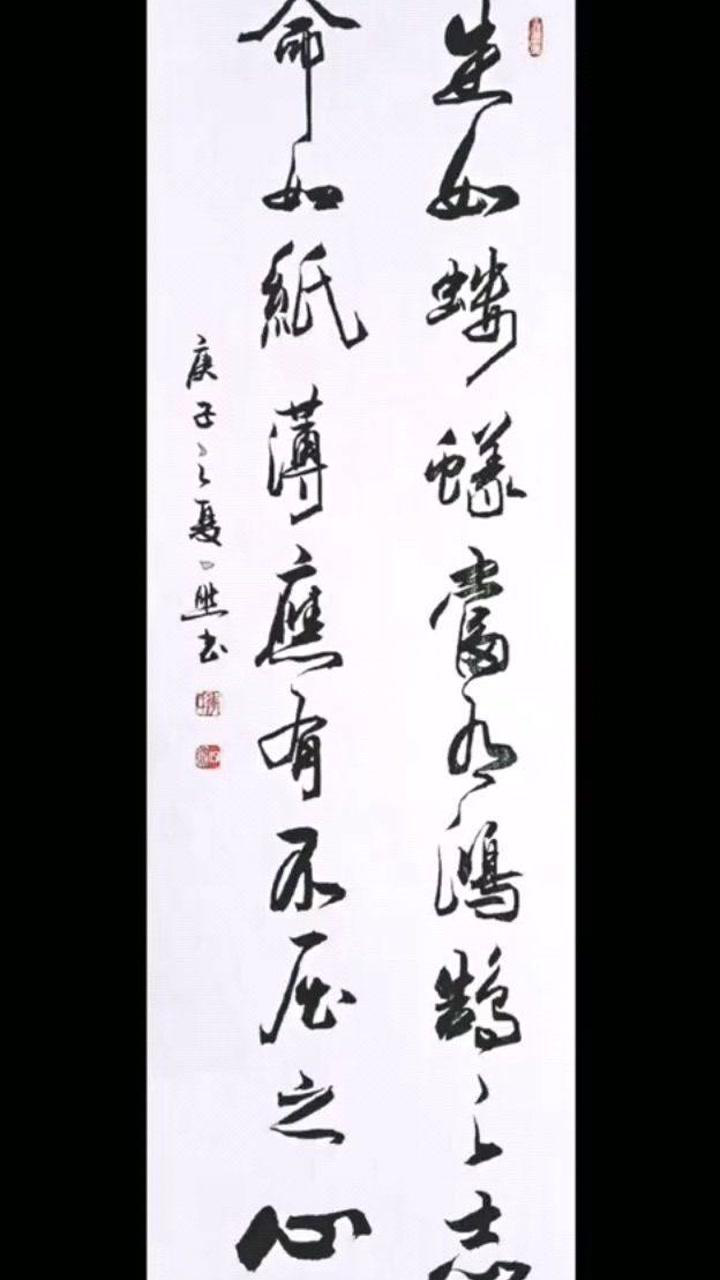 生如螻蟻當有鴻鵠之志
命如紙薄應有不屈之心
庚子之夏
書